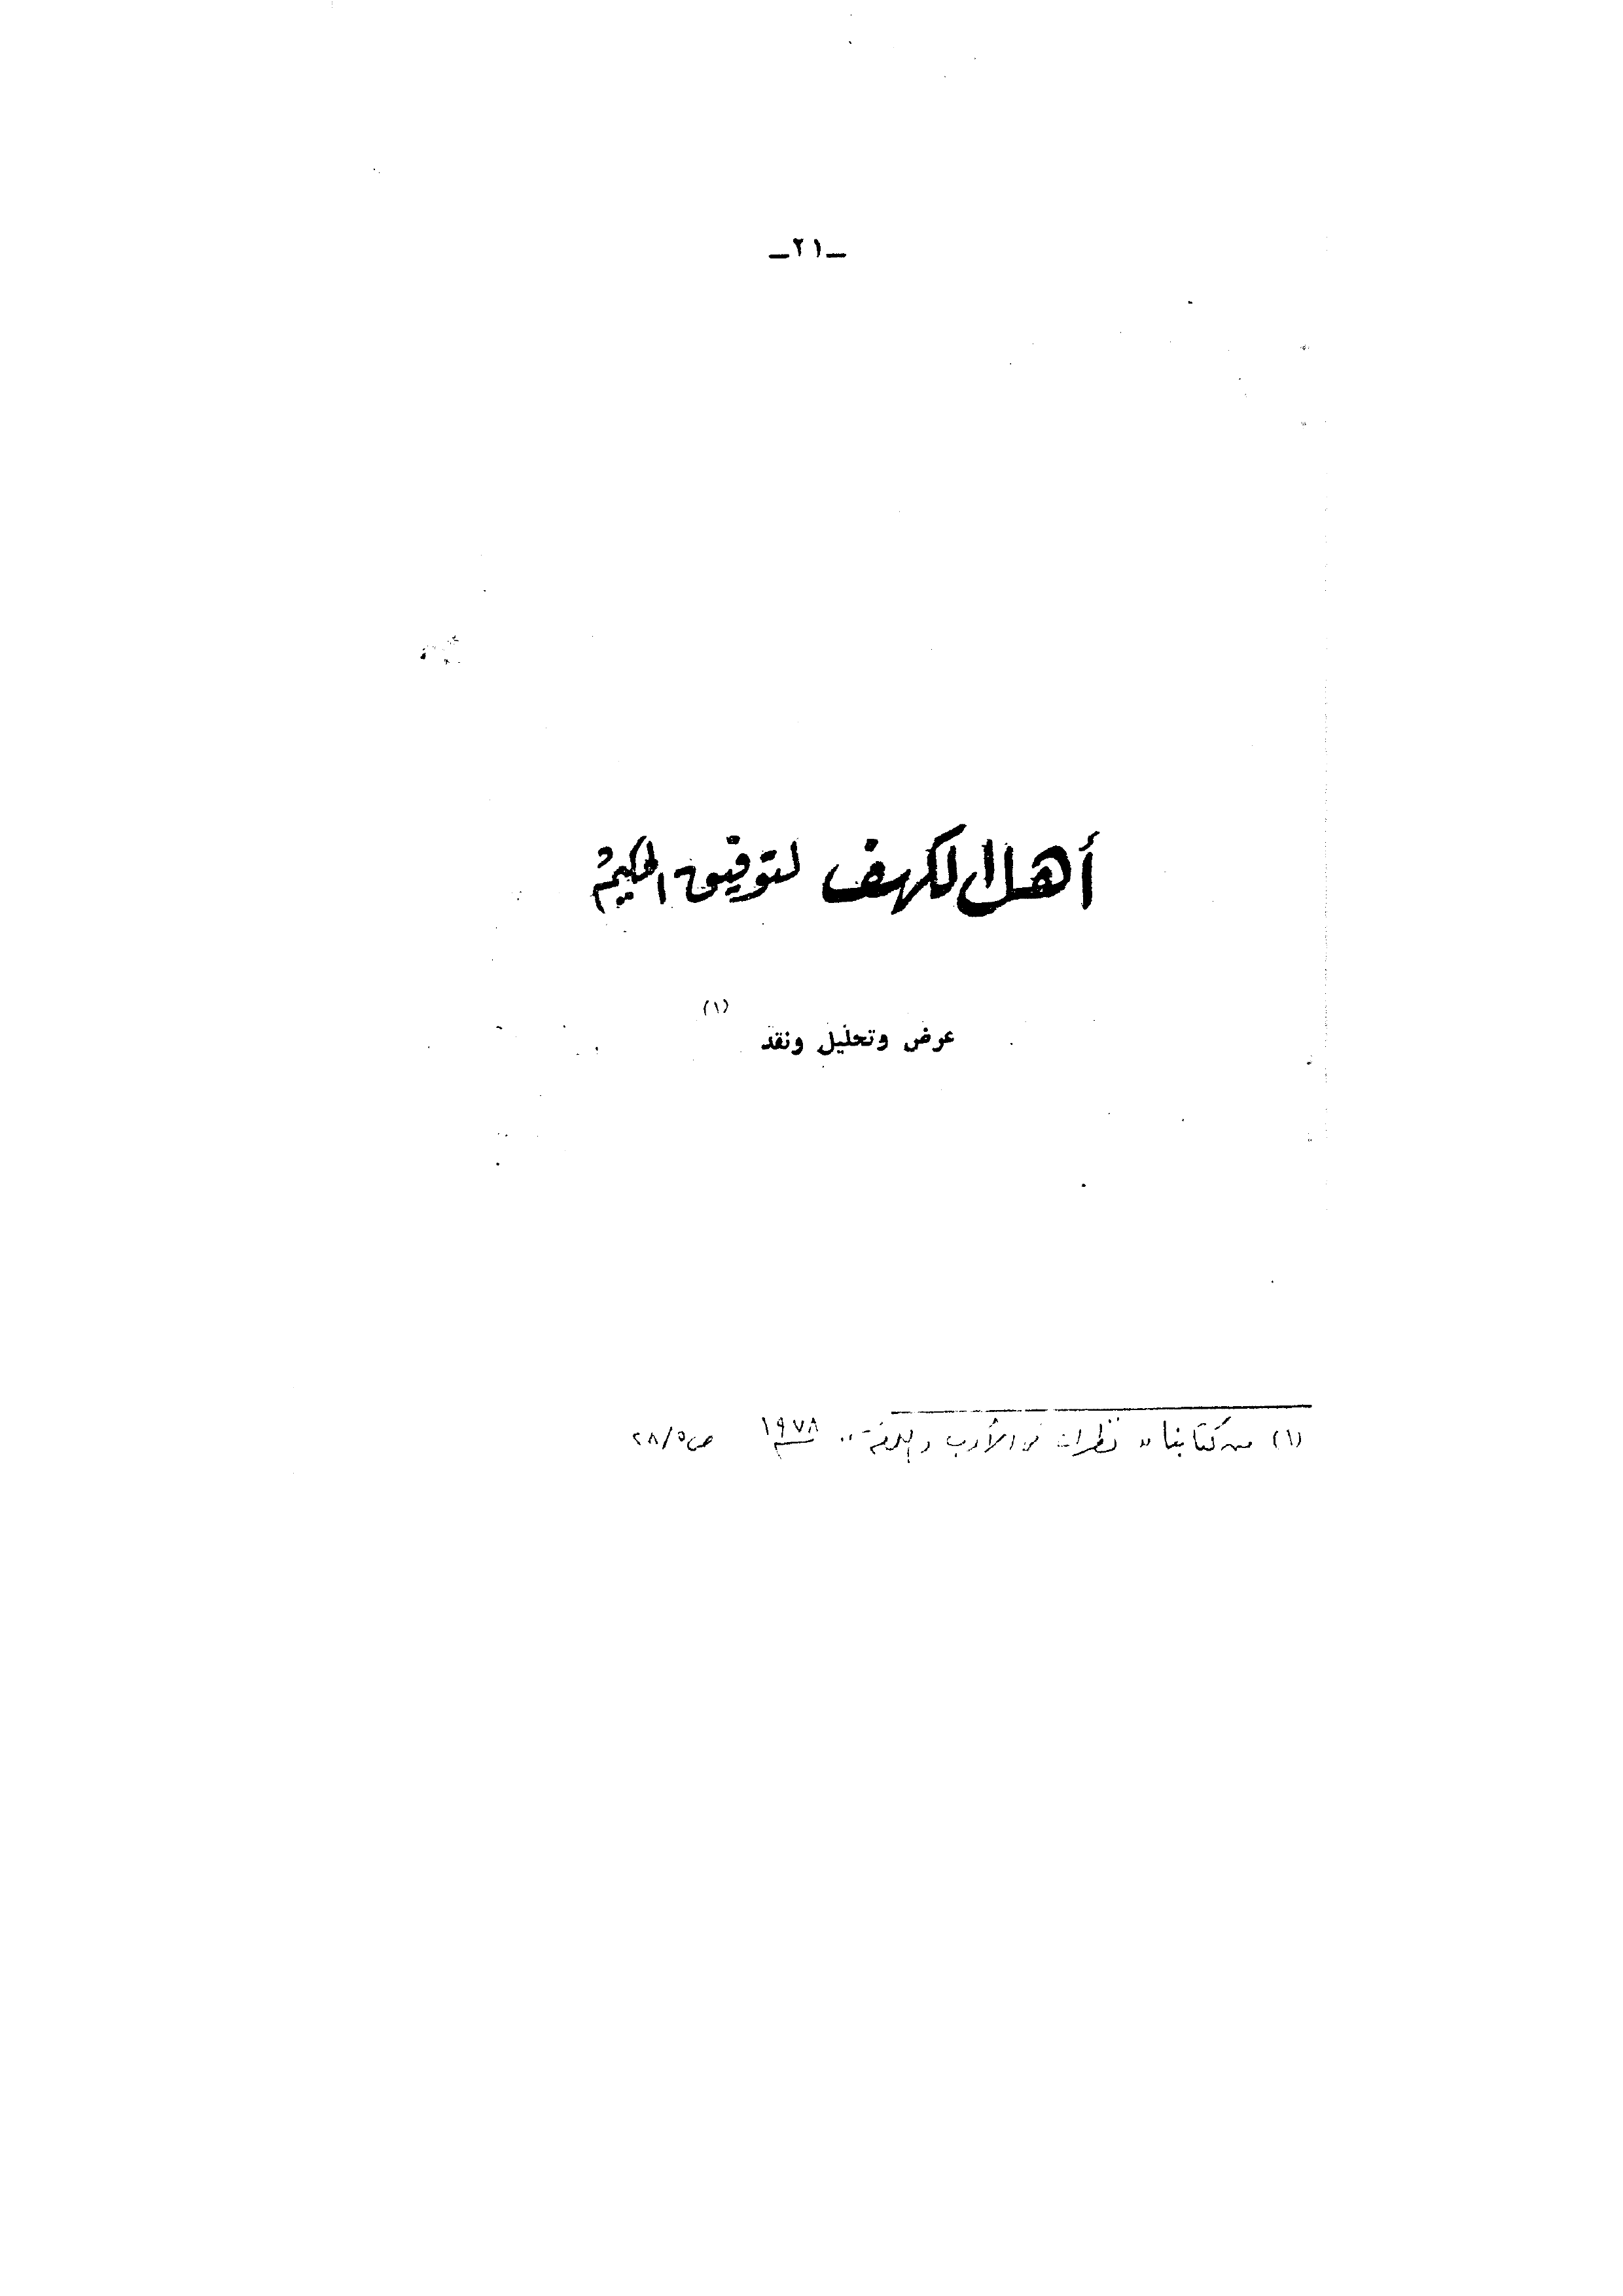 ـ٢١ـ
أهل الكهف لتوفيق الحكيم
(١)
عرض وتحليل ونقد
(١) من كتابنا " نظرات في الأدب واللغة " سنة ١٩٧٨ ص ٢٨/٥